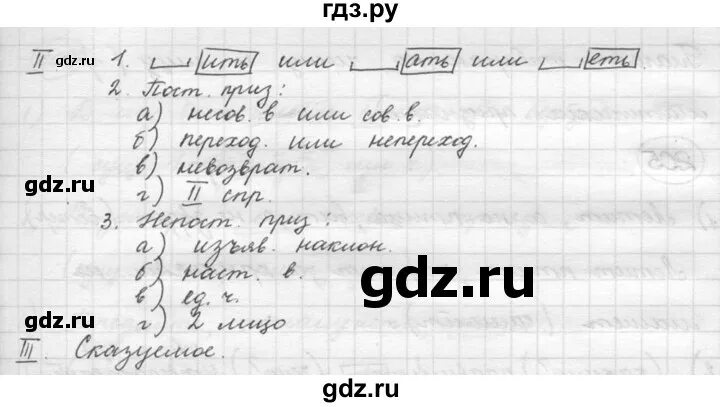 гдз.ру
II 1. ить или ать или еть.
2. Пост. приз:
а) несов. в или сов. в.
б) переход. или непереход.
в) невозврат.
г) II спр.
3. Непост. приз:
а) изъяв. наклон.
б) наст. в.
в) ед. ч.
г) 2 лицо
III. Сказуемое.
205
gdz.ru
gdz.ru
gdz.ru
gdz.ru
gdz.ru
gdz.ru
gdz.ru
gdz.ru